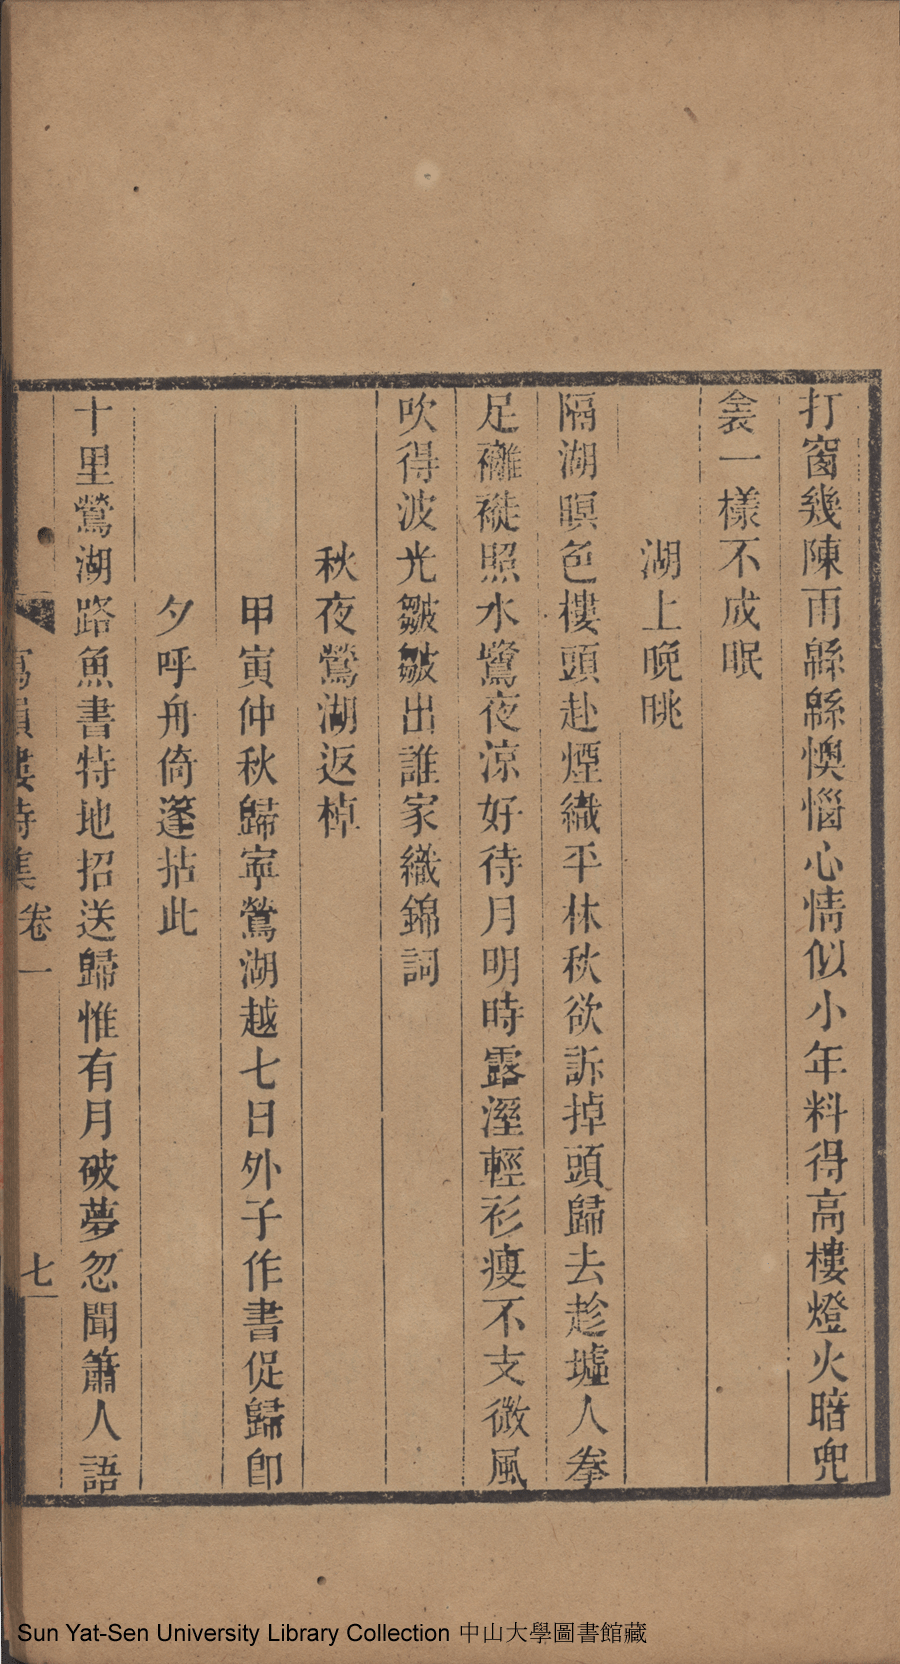 打窗幾陳雨緜緜懊惱心情似小年料得高樓燈火暗兜
衾一樣不成眠
湖上晚眺
隔湖暝色樓頭赴煙織平林秋欲訴掉頭歸去趁墟人拳
足䙰褷照水鷺夜涼好待月明時露溼輕衫瘦不支微風
吹得波光皺皺出誰家織錦詞
秋夜鶯湖返棹
甲寅仲秋歸寧鶯湖越七日外子作書促歸卽
夕呼舟倚篷拈此
十里鶯湖路魚書特地招送歸惟有月破夢忽聞簫人語
寫韻樓詩集 卷一 七
Sun Yat-Sen University Library Collection 中山大學圖書館藏